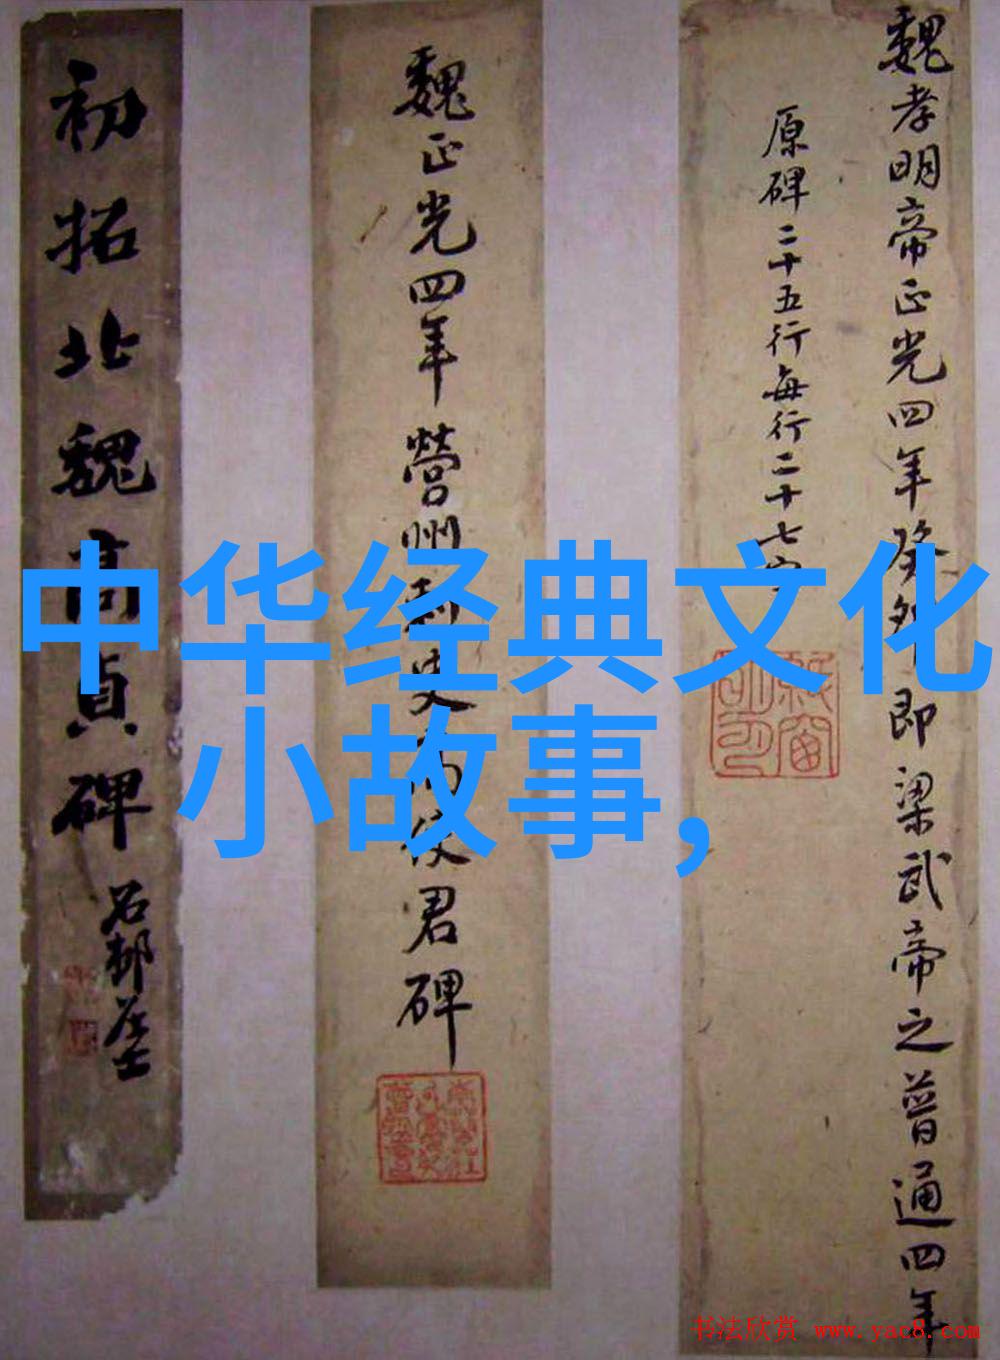 魏孝明帝正光四年癸卯即梁武帝之普通四年
原碑二十五行每行二十七字
魏正光四年營州刺史高使君碑
初拓北魏高貞碑
中华经典文化
小故事,
书法欣赏 www.yac8.com